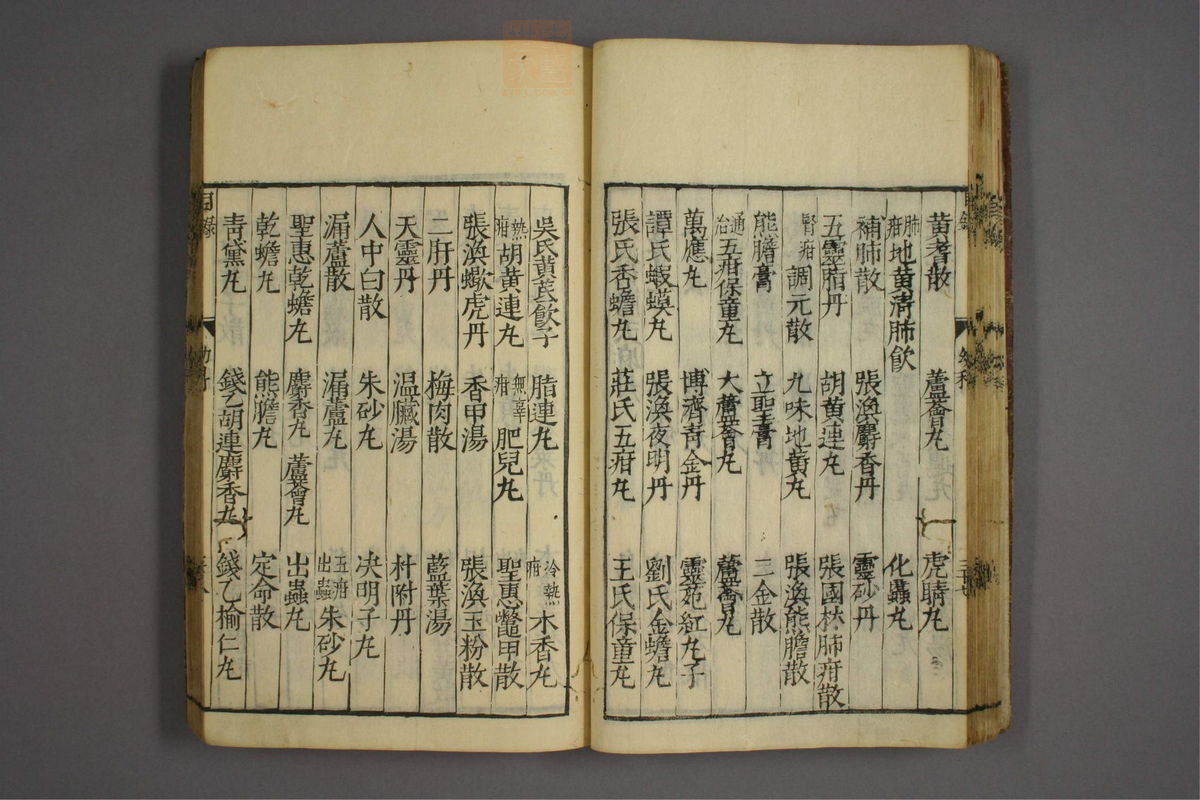 黄耆散 蘆薈丸 虎睛丸
肺疳地黄淸肺飮 化蟲丸
補肺散 張渙麝香丹 靈砂丹
五靈脂丹 胡黄連丸 張國材肺疳散
腎疳調元散 九味地黄丸 張渙熊膽散
熊膽膏 立聖膏 三金散
通治五疳保童丸 大蘆薈丸 蘆薈丸
萬應丸 博濟靑金丹 靈苑紅丸子
譚氏蝦蟆丸 張渙夜明丹 劉氏金蟾丸
張氏香蟾丸 莊氏五疳丸 王氏保童丸
吳氏黄芪飮子 脂連丸 冷熱疳木香丸
熱疳胡黄連丸 無辜疳肥兒丸 聖惠鼈甲散
張渙蠍虎丹 香甲湯 張渙玉粉散
二肝丹 梅肉散 藍葉湯
天靈丹 温臟湯 朴附丹
人中白散 朱砂丸 決明子丸
漏蘆散 漏蘆丸 五疳出蟲朱砂丸
聖惠乾蟾丸 麝香丸 蘆薈丸 出蟲丸
乾蟾丸 熊膽丸 定命散
靑黛丸 錢乙胡連麝香丸 錢乙榆仁丸
目錄 幼科